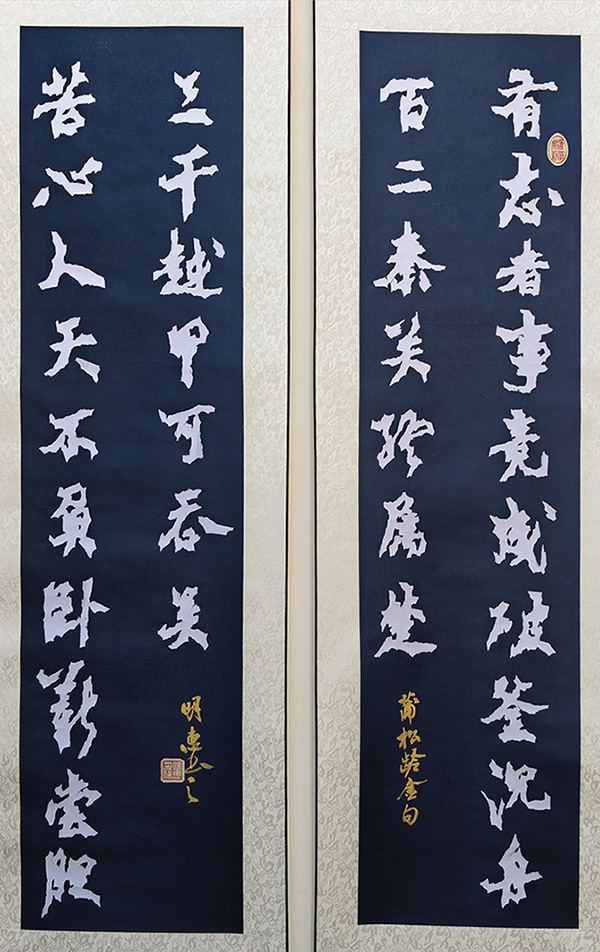 有志者事竟成破釜沉舟
百二秦关终属楚
蒲松龄金句
苦心人天不負卧薪尝胆
三千越甲可吞吴
明惠书之